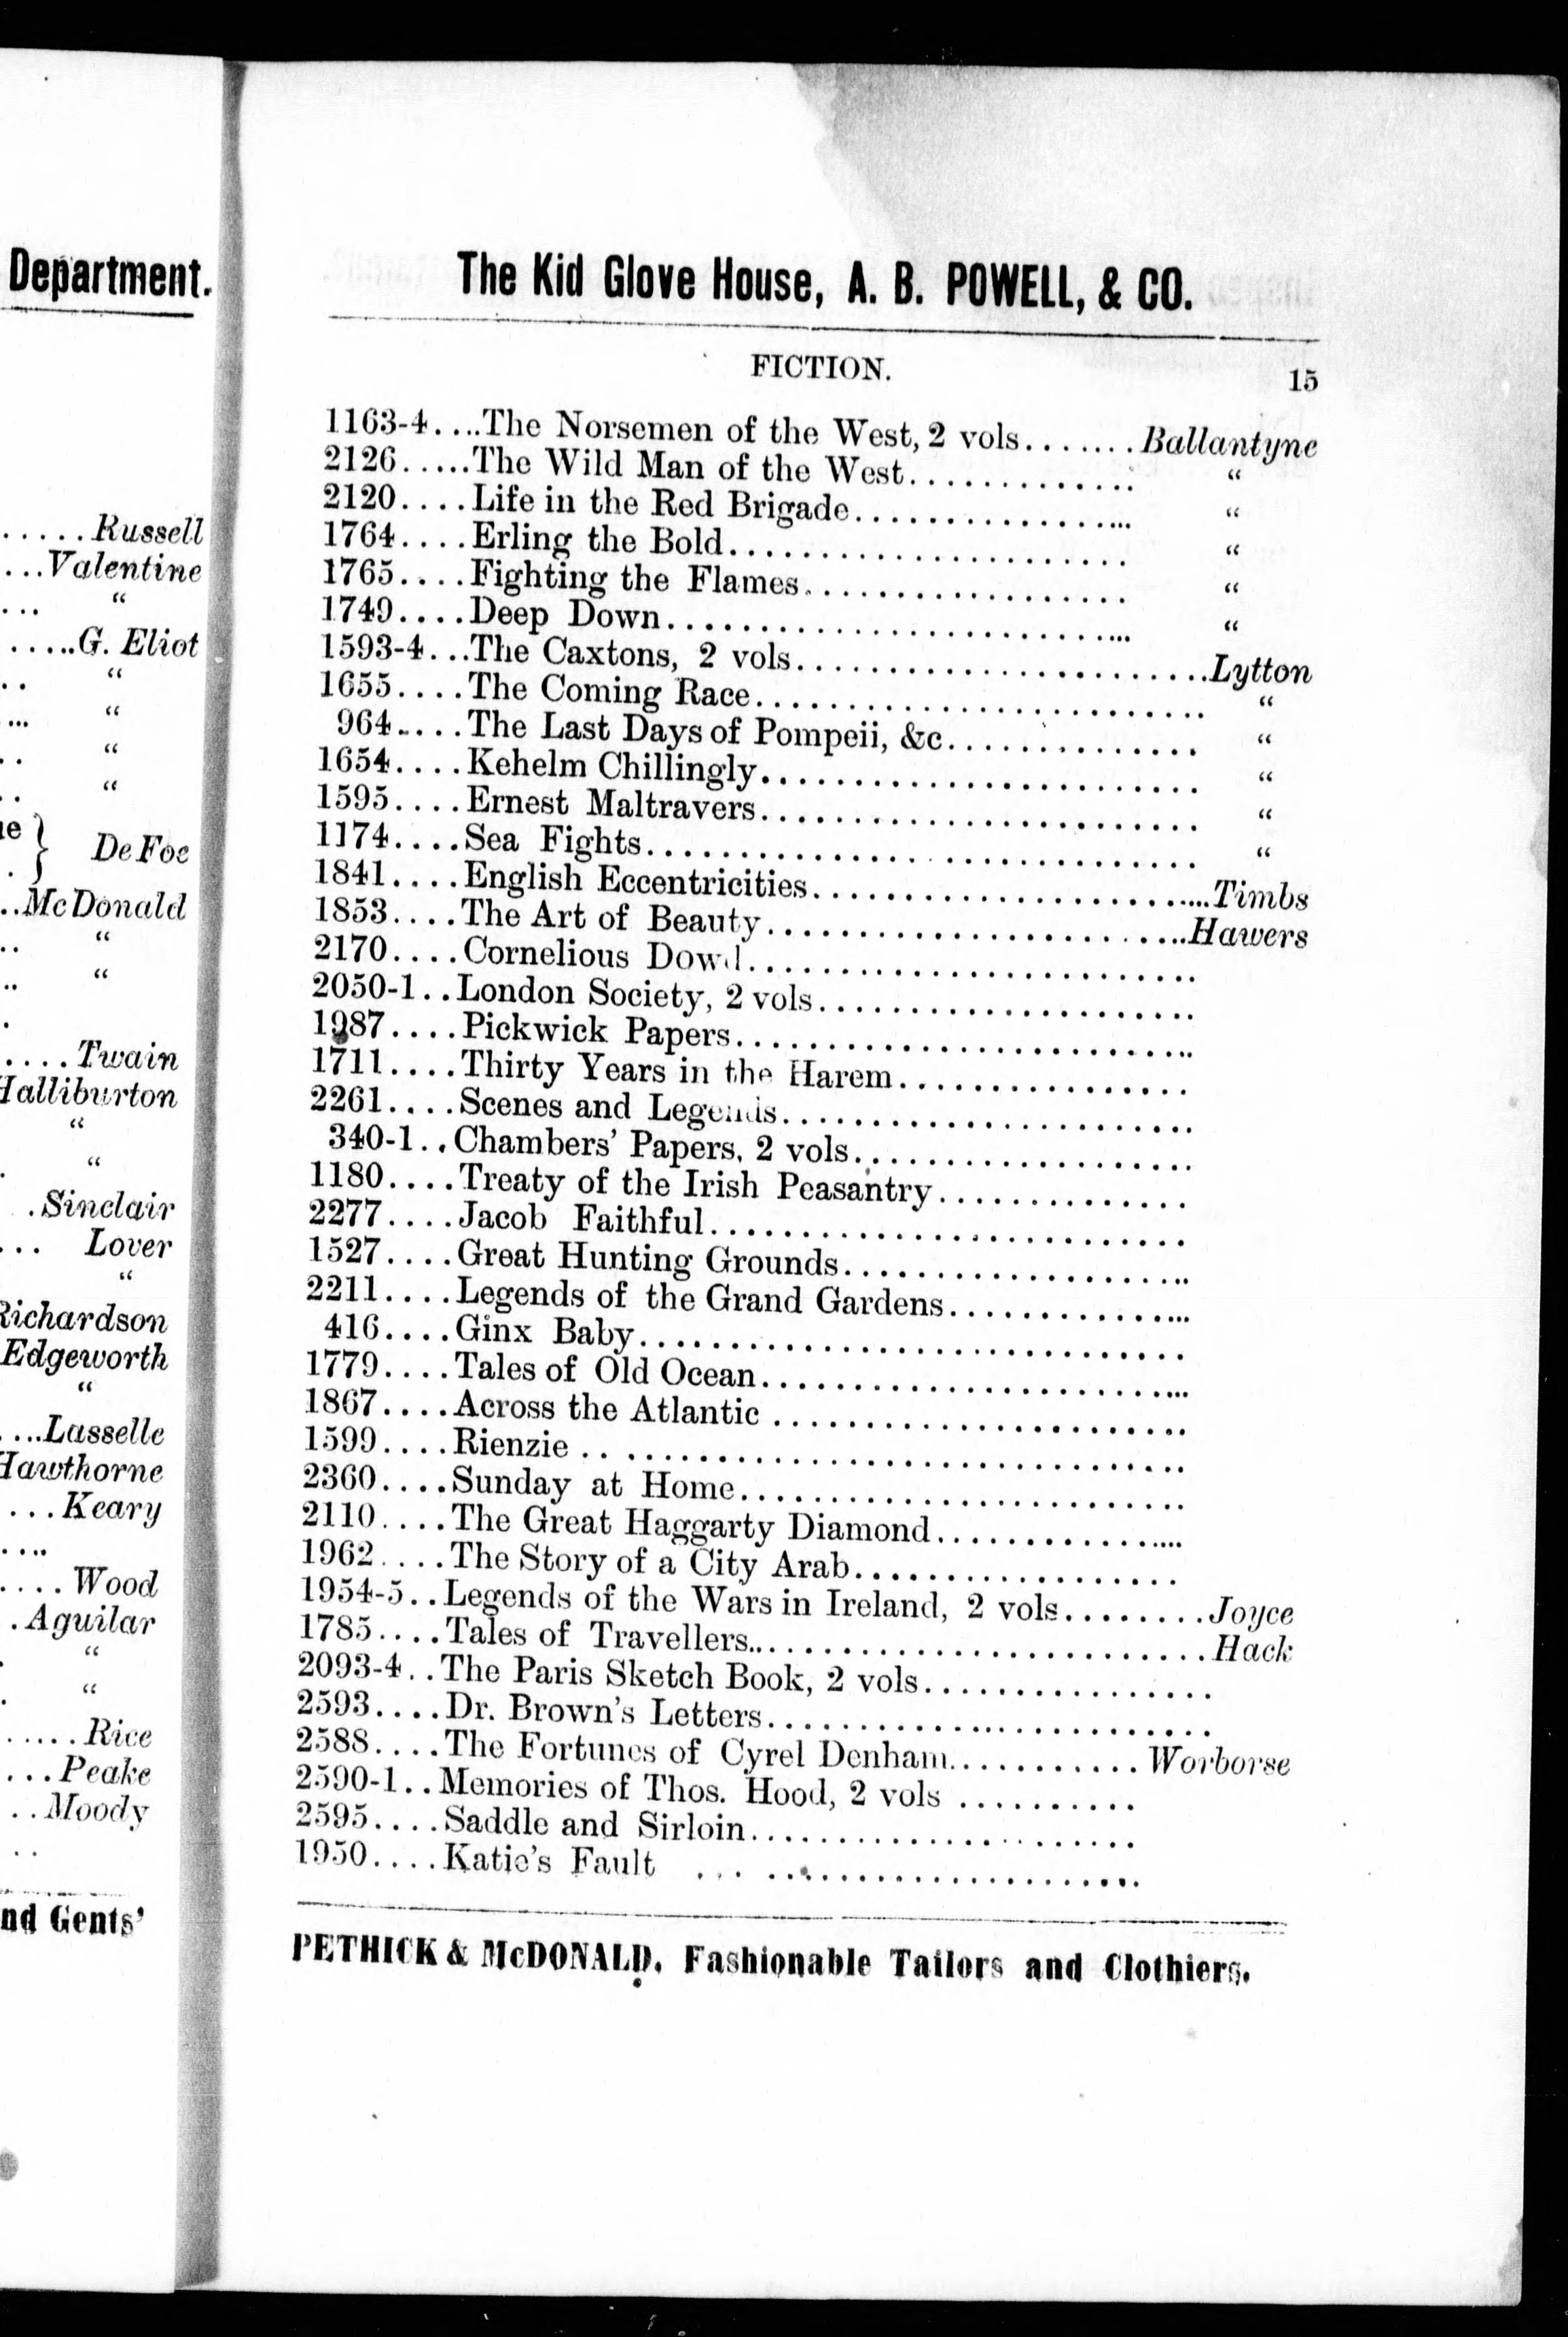 Department.
......Russell
...Valentine
... "
.....G. Eliot
.. "
... "
.. "
.. "
} De Foe
..McDonald
.. "
.. "
....Twain
Halliburton
"
"
.Sinclair
... Lover
"
Richardson
Edgeworth
"
....Lasselle
Hawthorne
...Keary
....
....Wood
.Aguilar
"
"
.....Rice
...Peake
..Moody
..
nd Gents'
The Kid Glove House, A. B. POWELL, & CO.
FICTION. 15
1163-4....The Norsemen of the West, 2 vols.......Ballantyne
2126.....The Wild Man of the West............. "
2120....Life in the Red Brigade................ "
1764....Erling the Bold...................... "
1765....Fighting the Flames.................. "
1749....Deep Down.......................... "
1593-4...The Caxtons, 2 vols.........................Lytton
1655....The Coming Race......................... "
964.....The Last Days of Pompeii, &c.............. "
1654....Kehelm Chillingly........................ "
1595....Ernest Maltravers........................ "
1174....Sea Fights.............................. "
1841....English Eccentricities.......................Timbs
1853....The Art of Beauty.........................Hawers
2170....Cornelious Dowd.........................
2050-1..London Society, 2 vols.....................
1987....Pickwick Papers.........................
1711....Thirty Years in the Harem................
2261....Scenes and Legends.......................
340-1..Chambers' Papers, 2 vols...................
1180....Treaty of the Irish Peasantry..............
2277....Jacob Faithful..........................
1527....Great Hunting Grounds...................
2211....Legends of the Grand Gardens..............
416....Ginx Baby..............................
1779....Tales of Old Ocean........................
1867....Across the Atlantic .......................
1599....Rienzie .. ...............................
2360....Sunday at Home.........................
2110....The Great Haggarty Diamond...............
1962....The Story of a City Arab..................
1954-5..Legends of the Wars in Ireland, 2 vols........Joyce
1785....Tales of Travellers..........................Hack
2093-4..The Paris Sketch Book, 2 vols................
2593....Dr. Brown's Letters.........................
2588....The Fortunes of Cyrel Denham...........Worborse
2590-1..Memories of Thos. Hood, 2 vols ..........
2595....Saddle and Sirloin.....................
1950....Katie's Fault ... ....................
PETHICK & McDONALD, Fashionable Tailors and Clothiers.